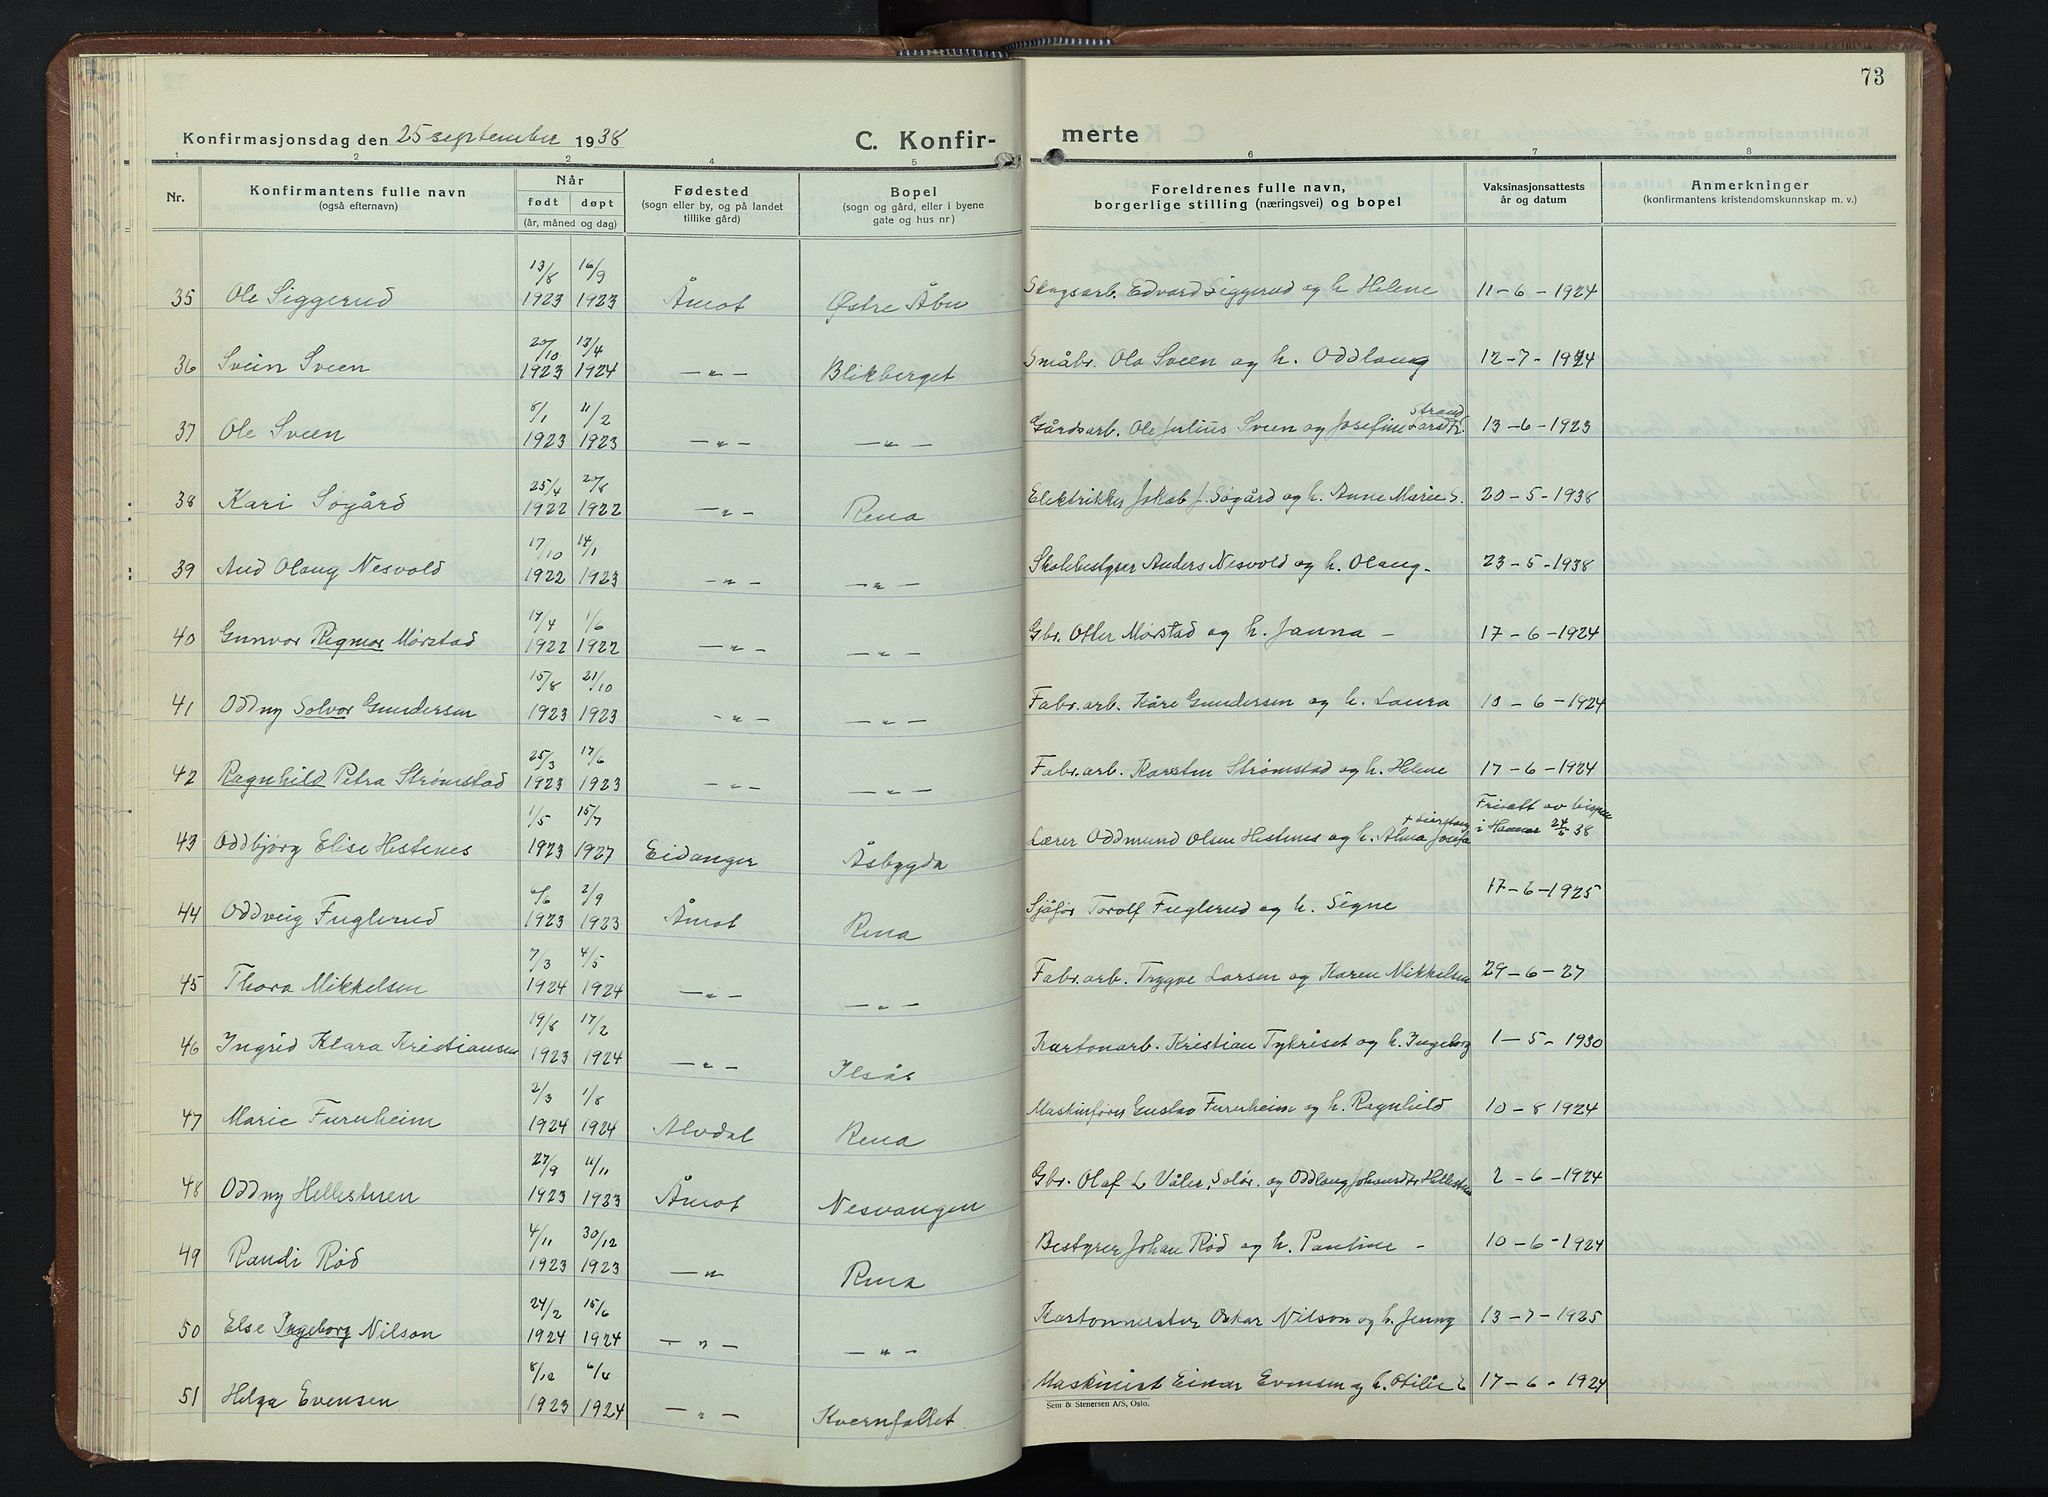 73
Konfirmasjonsdag den 25 september 1938
C. Konfir- merte
1 2 2 4 5 6 7 8
Nr. Konfirmantens fulle navn (også efternavn) Når født døpt (år, måned og dag) Fødested (sogn eller by, og på landet tillike gård) Bopel (sogn og gård, eller i byene gate og hus nr) Foreldrenes fulle navn, borgerlige stilling (næringsvei) og bopel Vaksinasjonsattests år og datum Anmerkninger (konfirmantens kristendomskunnskap m. v.)
35 Ole Siggerud 13/8 1923 16/9 1923 Åmot Østre Åbu Skogsarb. Edvard Siggerud og h. Helene 11-6-1924
36 Svein Sveen 20/10 1923 13/4 1924 —„— Blikberget Småbr. Ola Sveen og h. Oddlaug 12-7-1924
37 Ole Sveen 8/1 1923 11/2 1923 —„— —„— Gårdsarb. Ole Julius Sveen og Josefine Larsdtr. Strand 13-6-1923
38 Kari Søgård 25/4 1922 20/8 1922 —„— Rena Elektriker Jakob J. Søgård og h. Anne Marie S. 20-5-1938
39 Aud Olaug Nesvold 17/10 1922 14/1 1923 —„— —„— Skolebestyrer Anders Nesvold og h. Olaug - 23-5-1938
40 Gunvor Rigmor Mørstad 17/4 1922 1/6 1922 —„— —„— Gbr. Otter Mørstad og h. Janna - 17-6-1924
41 Oddny Solvor Gundersen 15/8 1923 21/10 1923 —„— —„— Fabr.arb. Kåre Gundersen og h. Laura 10-6-1924
42 Ragnhild Petra Strømstad 25/3 1923 17/6 1923 —„— —„— Fabr.arb. Karsten Strømstad og h. Helene 17-6-1924
43 Oddbjørg Elise Hestenes 1/5 1923 15/7 1927 Eidanger Åsbygda Lærer Oddmund Olsen Hestenes og h. Alma Josefa Fritatt av bispen i Hamar 24/5 38
44 Oddveig Fuglerud 6/6 1923 2/9 1923 Åmot Rena Sjåfør Torolf Fuglerud og h. Signe 17-6-1925
45 Thora Mikkelsen 7/3 1924 4/5 1924 —„— —„— Fabr.arb. Trygve Larsen og Karen Mikkelsen 29-6-27
46 Ingrid Klara Kristiansen 19/8 1923 17/2 1924 —„— Ilsås Kartonarb. Kristian Tykriset og h. Ingeborg 1-5-1930
47 Marie Furuheim 2/3 1924 1/8 1924 Alvdal Rena Maskinfører Gustav Furuheim og h. Ragnhild 10-8 1924
48 Oddny Hellestuen 27/9 1923 11/11 1923 Åmot Nesvangen Gbr. Olaf L Våler, Solør. og Oddlaug Johansdtr Hellestuen 2-6-1924
49 Randi Rød 4/11 1923 30/12 1923 —„ Rena Bestyrer Johan Rød og h. Pauline - 10-6-1924
50 Else Ingeborg Nilson 24/2 1924 15/6 1924 —„— —„— Kartonmester Oskar Nilson og h. Jenny 13-7-1925
51 Helga Evensen 8/12 1923 6/4 1924 —„— Kvernfallet Maskinist Einar Evensen og h. Otilie E 17-6-1924
Sem & Stenersen A/S, Oslo.